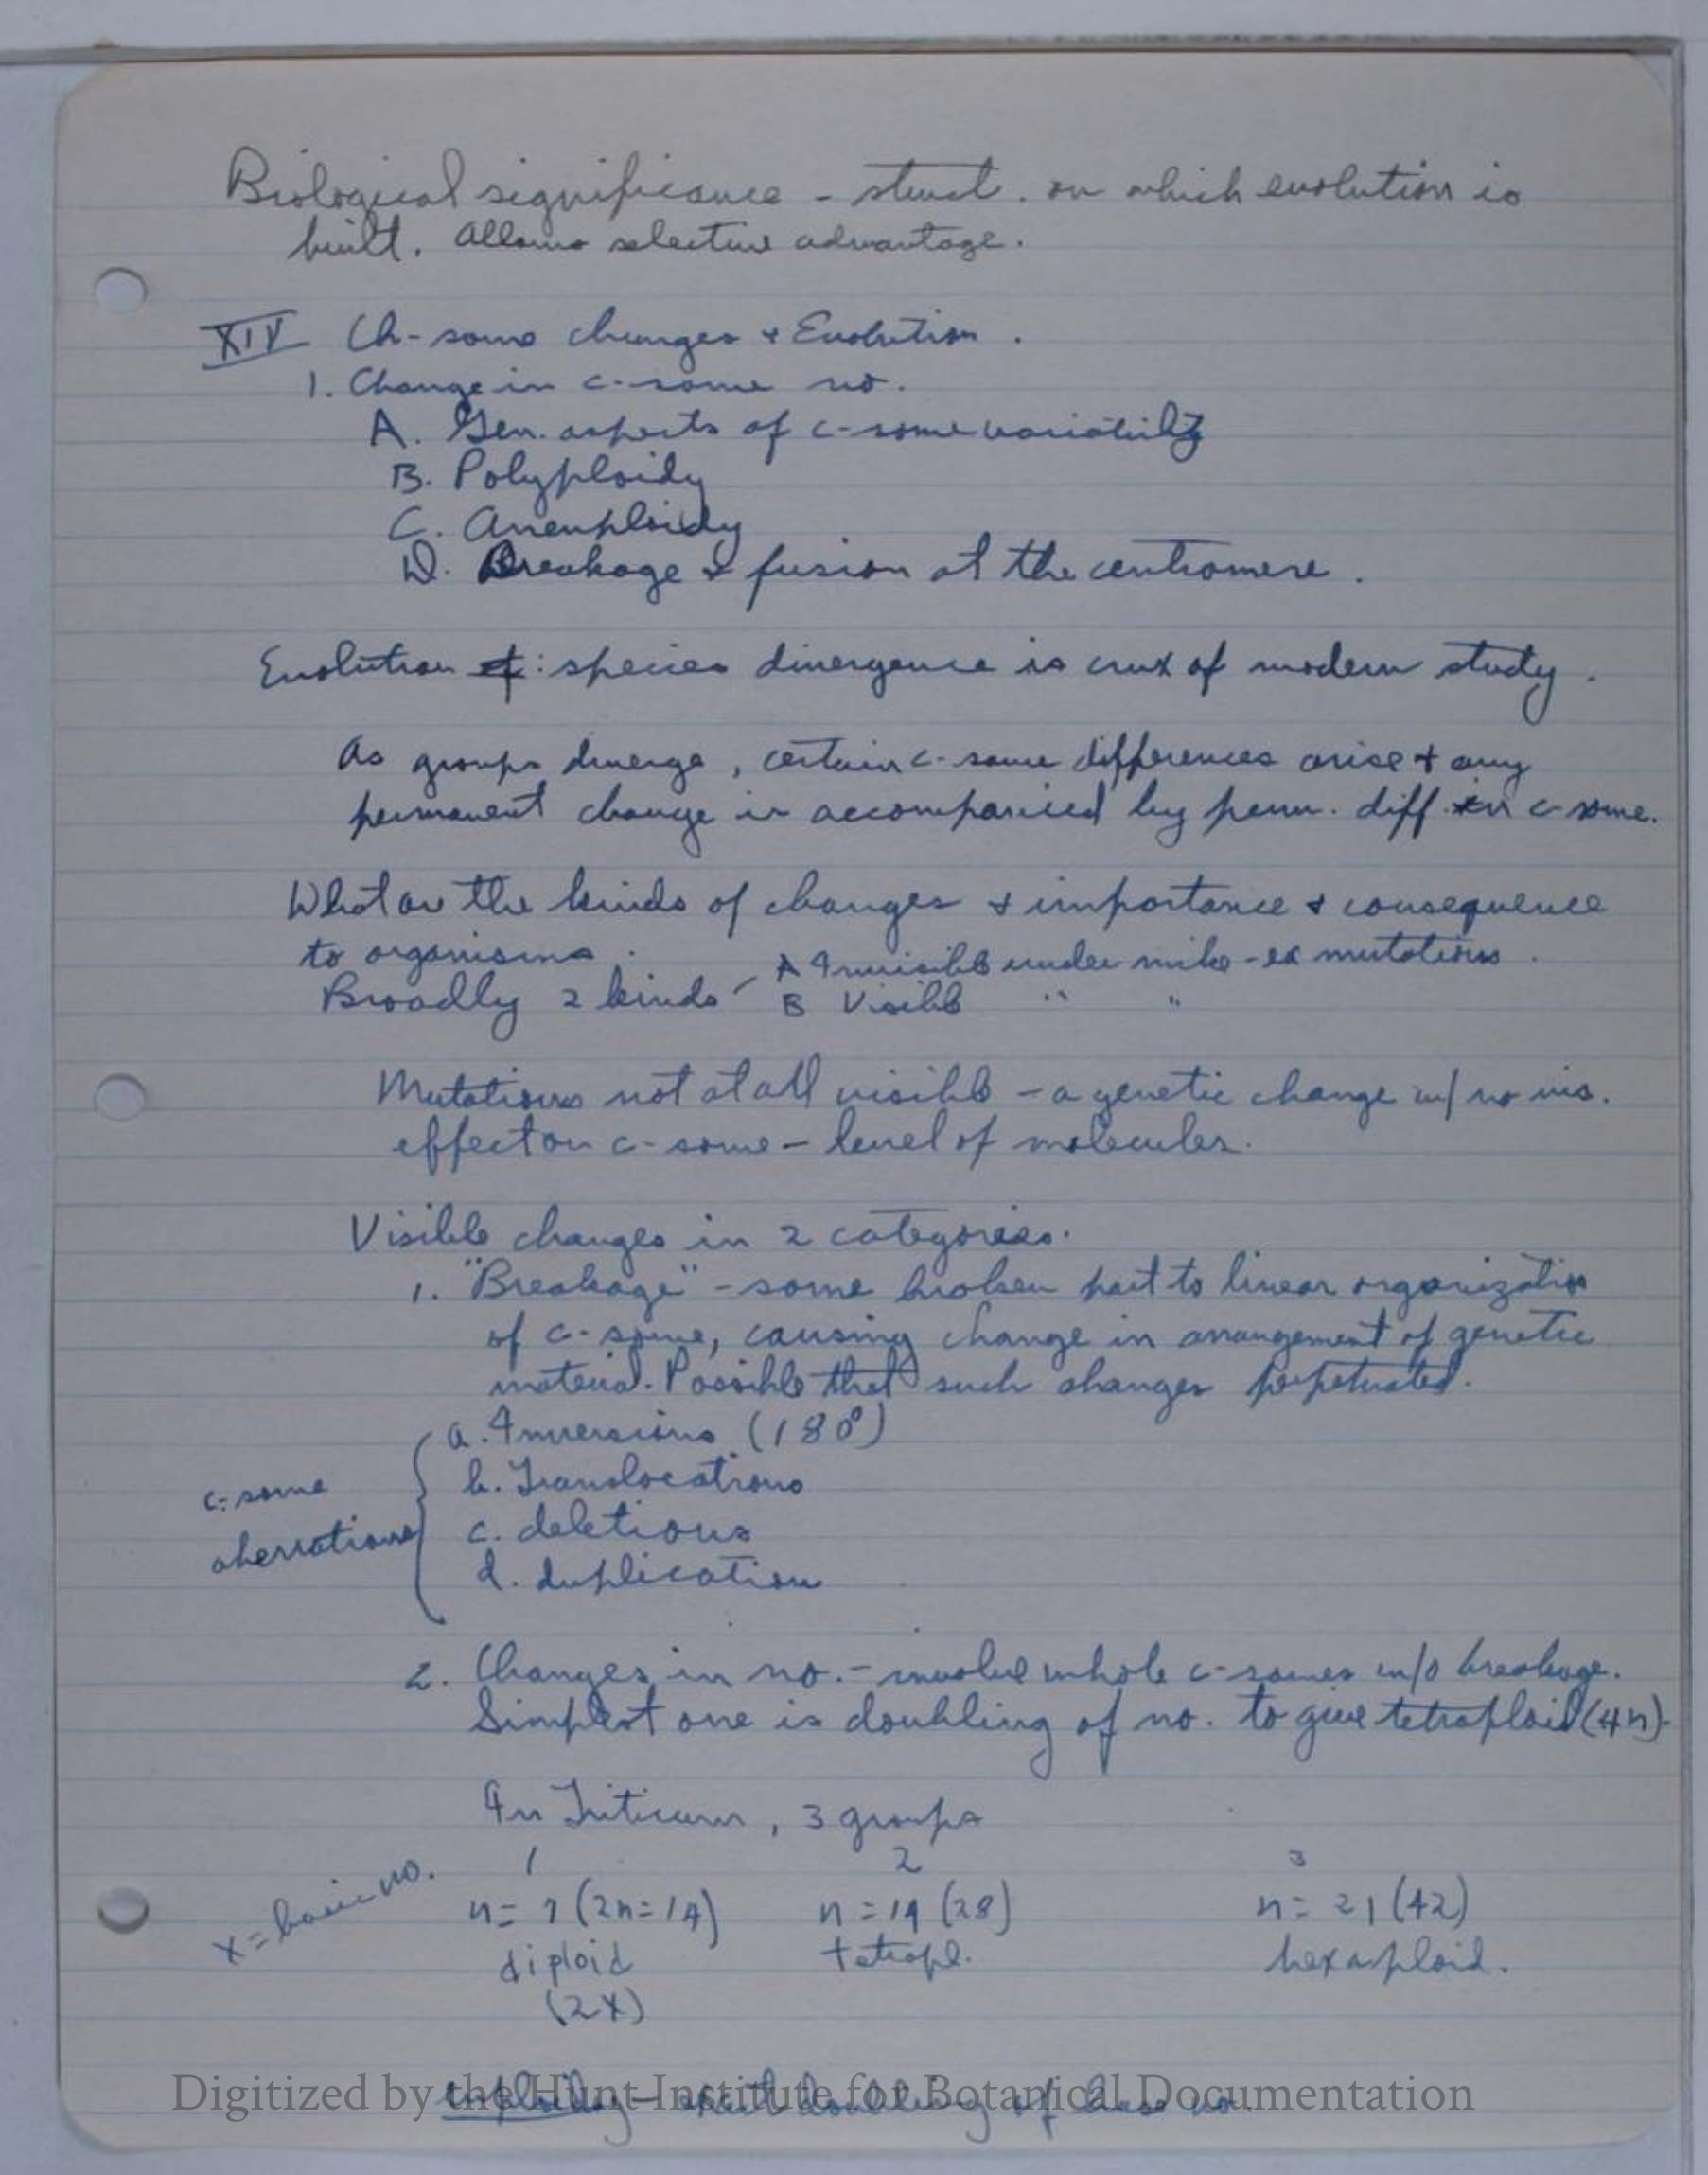 Biological significance - struct. on which evolution is
built. Allows selective advantage.
XIV Ch-some changes + Evolution.
1. Change in c-some no.
A. Gen. aspects of c-some variability
B. Polyploidy
C. Aneuploidy
D. Breakage & fusion at the centromere.
Evolution : species divergence is crux of modern study.
As groups diverge, certain c-some differences arise + any
permanent change is accompanied by perm. diff. in c-some.
What are the kinds of changes + importance + consequence
to organisms.
A Invisible under mike - ex mutations.
Broadly 2 kinds - B Visible " "
Mutations not at all visible - a genetic change w/ no vis.
effect on c-some - level of molecules.
Visible changes in 2 categories.
1. "Breakage" - some broken part to linear organization
of c-some, causing change in arrangement of genetic
material. Possible that such changes perpetuated.
a. Inversions (180°)
b. Translocations
c-some
c. deletions
aberrations
d. duplication
2. Changes in no. - involve whole c-somes w/o breakage.
Simplest one is doubling of no. to give tetraploid (4n).
In Triticum, 3 groups
1 2 3
x = basic no.
n = 7 (2n=14) n = 14 (28) n = 21 (42)
diploid tetrapl. hexaploid.
(2X)
euploidy - exact doubling of base no.
Digitized by the Hunt Institute for Botanical Documentation